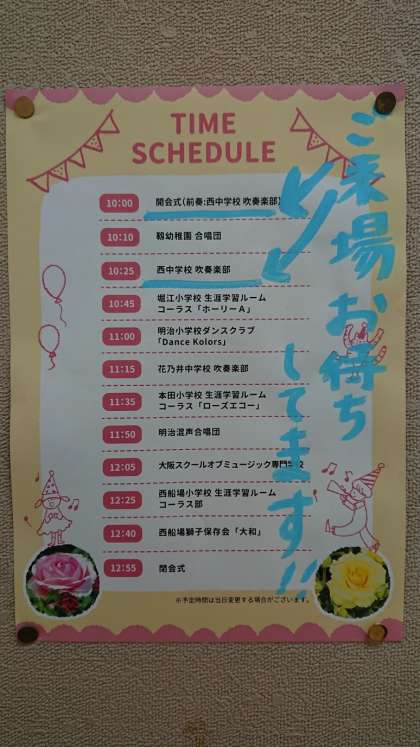 TIME
SCHEDULE
10:00 開会式(前奏:西中学校 吹奏楽部)
10:10 靱幼稚園 合唱団
10:25 西中学校 吹奏楽部
10:45 堀江小学校 生涯学習ルーム
コーラス「ホーリーA」
11:00 明治小学校ダンスクラブ
「Dance Kolors」
11:15 花乃井中学校 吹奏楽部
11:35 本田小学校 生涯学習ルーム
コーラス「ローズエコー」
11:50 明治混声合唱団
12:05 大阪スクールオブミュージック専門学校
12:25 西船場小学校 生涯学習ルーム
コーラス部
12:40 西船場獅子保存会「大和」
12:55 閉会式
※予定時間は当日変更する場合がございます。
ご来場お待ち
してます!!